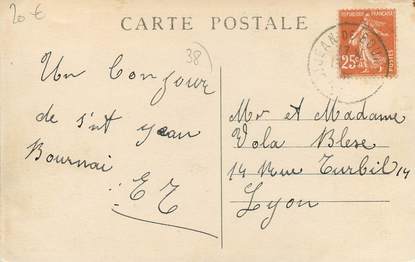 20 €
CARTE POSTALE
38
REPUBLIQUE FRANÇAISE
25c
JEAN DE BOU
Un bonjour
de s'nt jean
Bournai
E T
Mr et Madame
Vola Blese
14 Rue Turbil 14
Lyon